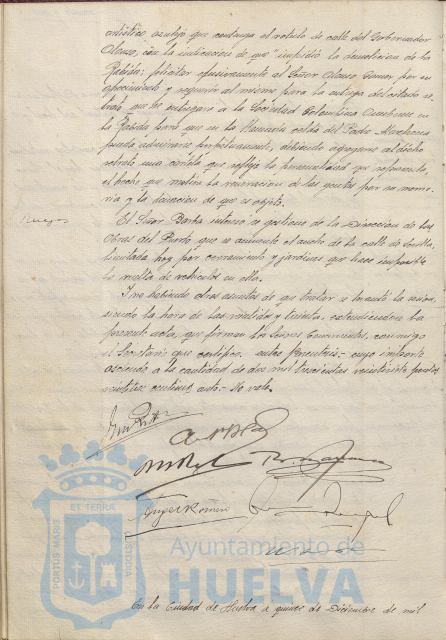 artístico azulejo que contenga el rotulo de calle del Gobernador
Alonso, con la indicacion de que "impidió la demolicion de la
Rabida; felicitar efusivamente al Señor Alonso
ofrecimiento y requerir al mismo para la entrega del
que ha de entregarse a la Sociedad Colombina Onubense
la Rabida para que en la llamada celda del Padre Marchena
pueda admirarse perpetuamente, debiendo agregarse al dicho
retrato una cartela que refleje la personalidad que representa,
el hecho que motiva la veneracion de las gentes por su memo-
ria y la donacion de que es objeto.
Ruegos
El Señor Barba interesó se gestione de la Direccion de las
Obras del Puerto que se aumente el ancho de la calle de
limitada hoy por cerramiento y jardines que hace imposible
la vuelta de vehiculos en ella.
Y no habiendo otros asuntos de que tratar se levantó la sesion
siendo la hora de las veintidos y treinta, extendiendose la
presente acta, que firman los Señores Concurrentes, conmigo
el Secretario que certifico. entre parentesis = cuyo importe
asciende a la cantidad de dos mil trescientas veintisiete pesetas
centimos = No vale.
PORTUS MARIS ET TERRAE CUSTODIA
Ayuntamiento de
HUELVA
En la Ciudad de Huelva a quince de Diciembre de mil